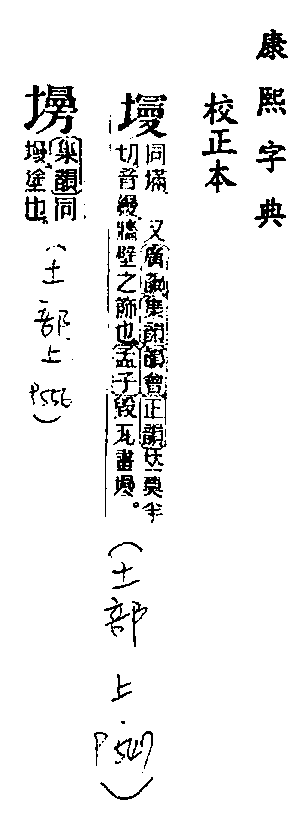 康熙字典
校正本
墁
同㙢 又廣韻集韻韻會正韻𠀤莫半
切音縵牆壁之飾也孟子毀瓦畫墁。
(土部上 P547)
集韻同
墁塗也
(土部上 P556)